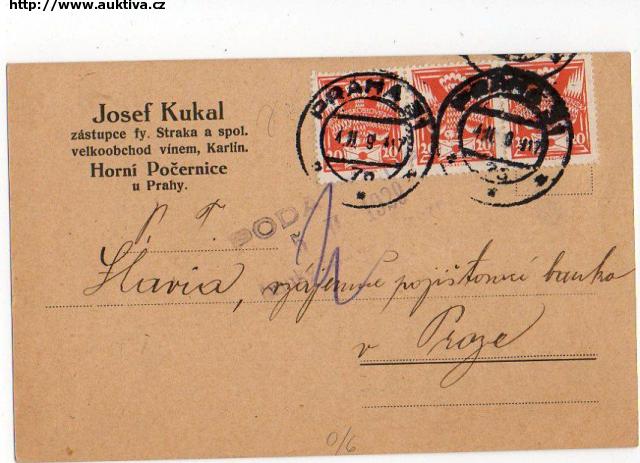 http://www.auktiva.cz
Josef Kukal
zástupce fy. Straka a spol.
velkoobchod vínem, Karlín.
Horní Počernice
u Prahy.
PRAHA 31
PRAHA 31
20 20
20
20
PODÁ
1920
P. T.
Slavia, vzájemně pojišťovací banka
v Praze
0/6